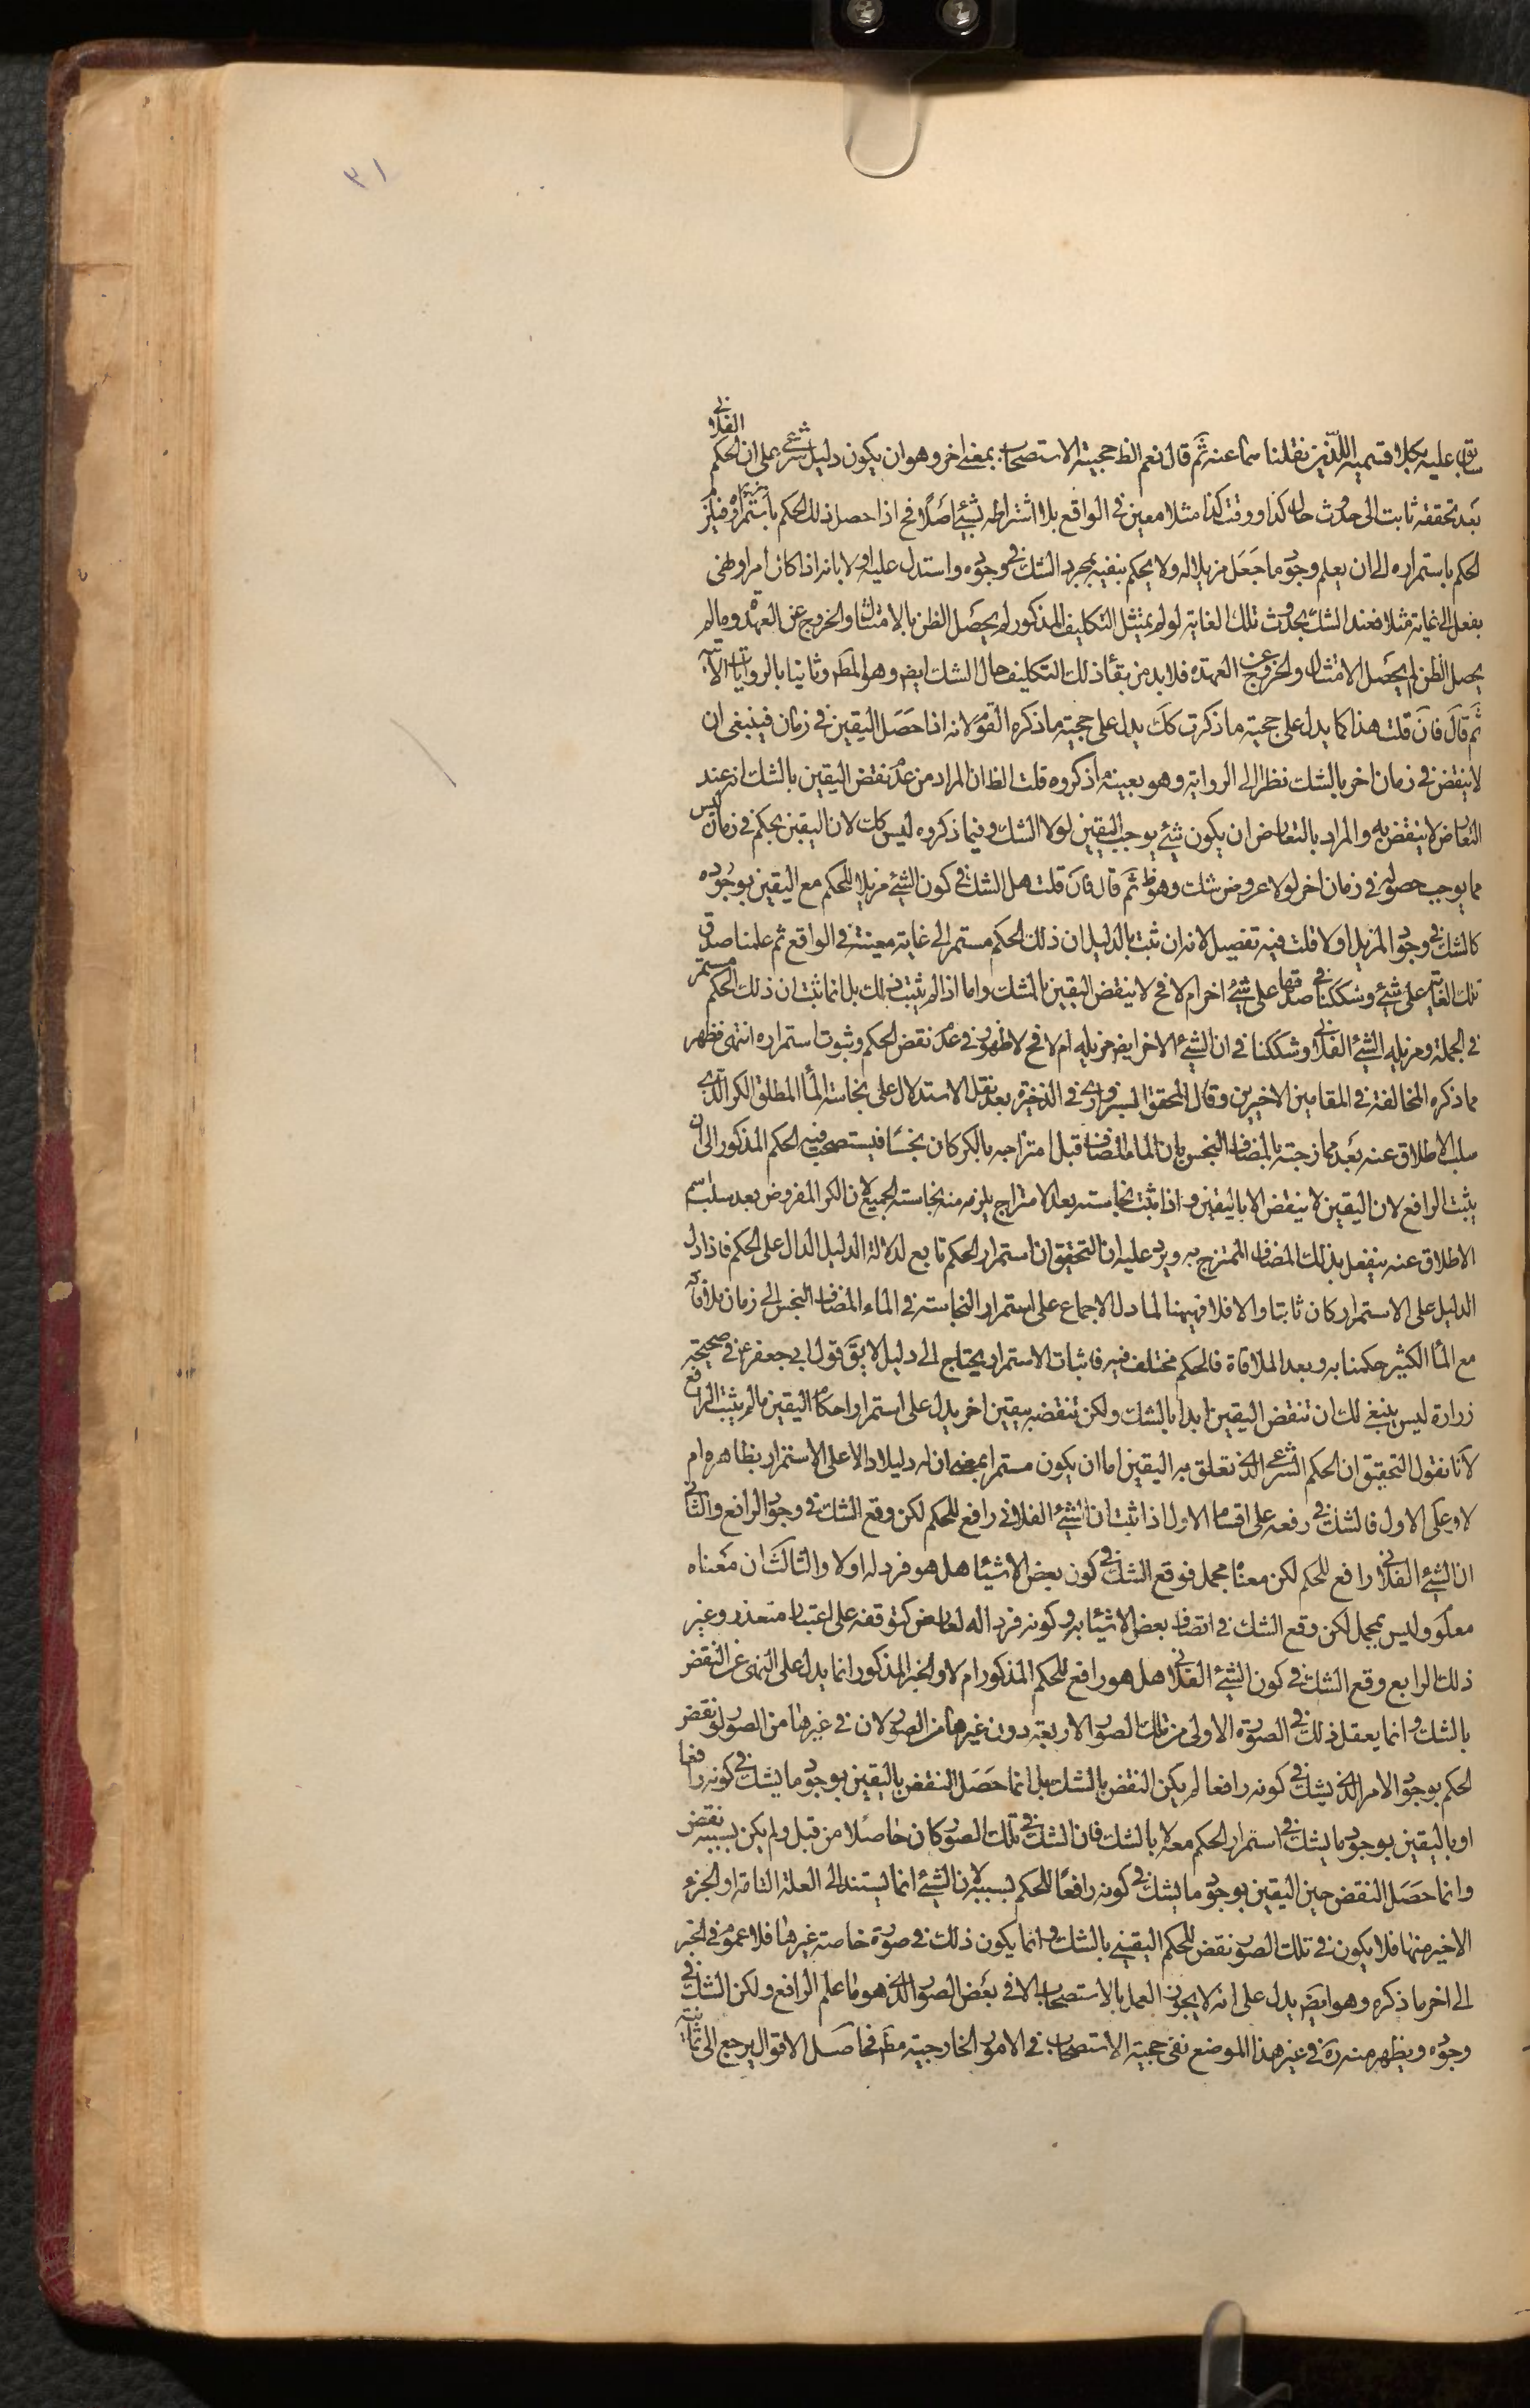 ٣١
سابق عليه بكلا قسميه اللذين نقلنا سابقا عنه ثم قال نعم الظ حجية الاستصحاب بمعنى اخر وهو ان يكون دليل شرعي على ان الحكم الفلاني
بعد تحققه ثابت الى حدوث حال كذا او وقت كذا مثلا معين في الواقع بلا اشتراطه بشيئ اصلا فح اذا حصل ذلك الحكم فيلزم
الحكم باستمراره الى ان يعلم وجود ما جعل مزيلا له ولا يحكم بنفيه بمجرد الشك في وجوده واستدل عليه اولا بانه اذا كان امر او نهي
بفعل الى غاية مثلا فعند الشك بحدوث تلك الغاية لو لم يمتثل التكليف المذكور لم يحصل الظن بالامتثال والخروج عن العهدة وما لم
يحصل الظن لم يحصل الامتثال والخروج عن العهدة فلا بد من بقاء ذلك التكليف حال الشك ايض وهو المط وثانيا بالروايات الآتية
ثم قال فان قلت هذا كما يدل على حجية ما ذكرت كك يدل على حجية ما ذكره القوم لانه اذا حصل اليقين في زمان فينبغي ان
لا ينقض في زمان اخر بالشك نظرا الى الرواية وهو بعينه ما ذكروه قلت الظ ان المراد من عدم نقض اليقين بالشك انه عند
التعارض لا ينقض به والمراد بالتعارض ان يكون شيئ يوجب اليقين لولا الشك وفيما ذكروه ليس كك لان اليقين بحكم في زمان ليس
مما يوجب حصوله في زمان اخر لولا عروض شك وهو ظ ثم قال فان قلت هل الشك في كون الشيئ مزيلا للحكم مع اليقين بوجوده
كالشك في وجود المزيل او لا قلت فيه تفصيل لانه ان ثبت بالدليل ان ذلك الحكم مستمر الى غاية معينة في الواقع ثم علمنا صدق
تلك الغاية على شيئ وشككنا في صدقها على شيئ اخر ام لا فح لا ينقض اليقين بالشك واما اذا لم يثبت ذلك بل انما ثبت ان ذلك الحكم مستمر
في الجملة ومزيله الشيئ الفلاني وشككنا في ان الشيئ الاخر ايض مزيله ام لا فح لا ظهور في عدم نقض الحكم وثبوت استمراره انتهى فظهر
مما ذكره المخالفة في المقامين الاخيرين وقال المحقق السبزواري في الذخيرة بعد نقل الاستدلال على نجاسة الماء المطلق الكر الذي
سلب الاطلاق عنه بعد ممازجته بالمضاف النجس بان الماء المضاف قبل امتزاجه بالكر كان نجسا فيستصحب فيه الحكم المذكور الى ان
يثبت الرافع لان اليقين لا ينقض الا باليقين واذا ثبت نجاسته بعد الامتزاج يلزمه منه نجاسة الجميع لان الكر المفروض بعد سلب اسم
الاطلاق عنه ينفعل بذلك المضاف الممتزج به ويرد عليه ان التحقيق ان استمرار الحكم تابع لدلالة الدليل الدال على الحكم فاذا دل
الدليل على الاستمرار كان ثابتا والا فلا فهيهنا لما دل الاجماع على استمرار النجاسة في الماء المضاف النجس الى زمان ملاقاته
مع الماء الكثير حكمنا به وبعد الملاقاة فالحكم مختلف فيه فاثبات الاستمرار يحتاج الى دليل لا يق قول ابي جعفر ع في صحيحة
زرارة ليس ينبغي لك ان تنقض اليقين ابدا بالشك ولكن تنقضه بيقين اخر يدل على استمرار احكام اليقين ما لم يثبت الرافع
لانا نقول التحقيق ان الحكم الشرعي الذي تعلق به اليقين اما ان يكون مستمرا بمعنى ان له دليلا دالا على الاستمرار بظاهره ام
لا وعلى الاول فالشك في رفعه على اقسام الاول اذا ثبت ان الشيئ الفلاني رافع للحكم لكن وقع الشك في وجود الرافع والثاني
ان الشيئ الفلاني رافع للحكم لكن معناه مجمل فوقع الشك في كون بعض الاشياء هل هو فرد له او لا والثالث ان معناه
معلوم وليس بمجمل لكن وقع الشك في اتصاف بعض الاشياء به وكونه فردا له لعارض كتوقفه على اعتبار متعذر وغير
ذلك الرابع وقع الشك في كون الشيئ الفلاني هل هو رافع للحكم المذكور ام لا والخبر المذكور انما يدل على النهي عن النقض
بالشك وانما يعقل ذلك في الصورة الاولى من تلك الصور الاربعة دون غيرها من الصور لان في غيرها من الصور لو نقض
الحكم بوجود الامر الذي يشك في كونه رافعا لم يكن النقض بالشك بل انما حصل النقض باليقين بوجود ما يشك في كونه رافعا
او باليقين بوجود ما يشك في استمرار الحكم معه لا بالشك فان الشك في تلك الصور كان حاصلا من قبل ولم يكن بسببه نقض
وانما حصل النقض حين اليقين بوجود ما يشك في كونه رافعا للحكم بسببه لان الشيئ انما يستند الى العلة التامة او الجزء
الاخير منها فلا يكون في تلك الصور نقض للحكم اليقيني بالشك وانما يكون ذلك في صورة خاصة غيرها فلا عموم في الخبر
الى اخر ما ذكره وهو ايض يدل على انه لا يجوز العمل بالاستصحاب الا في بعض الصور الذي هو ما علم الرافع ولكن الشك في
وجوده ويظهر منه ره في غير هذا الموضع نفي حجية الاستصحاب في الامور الخارجية مط فحاصل الاقوال يرجع الى ثمانية